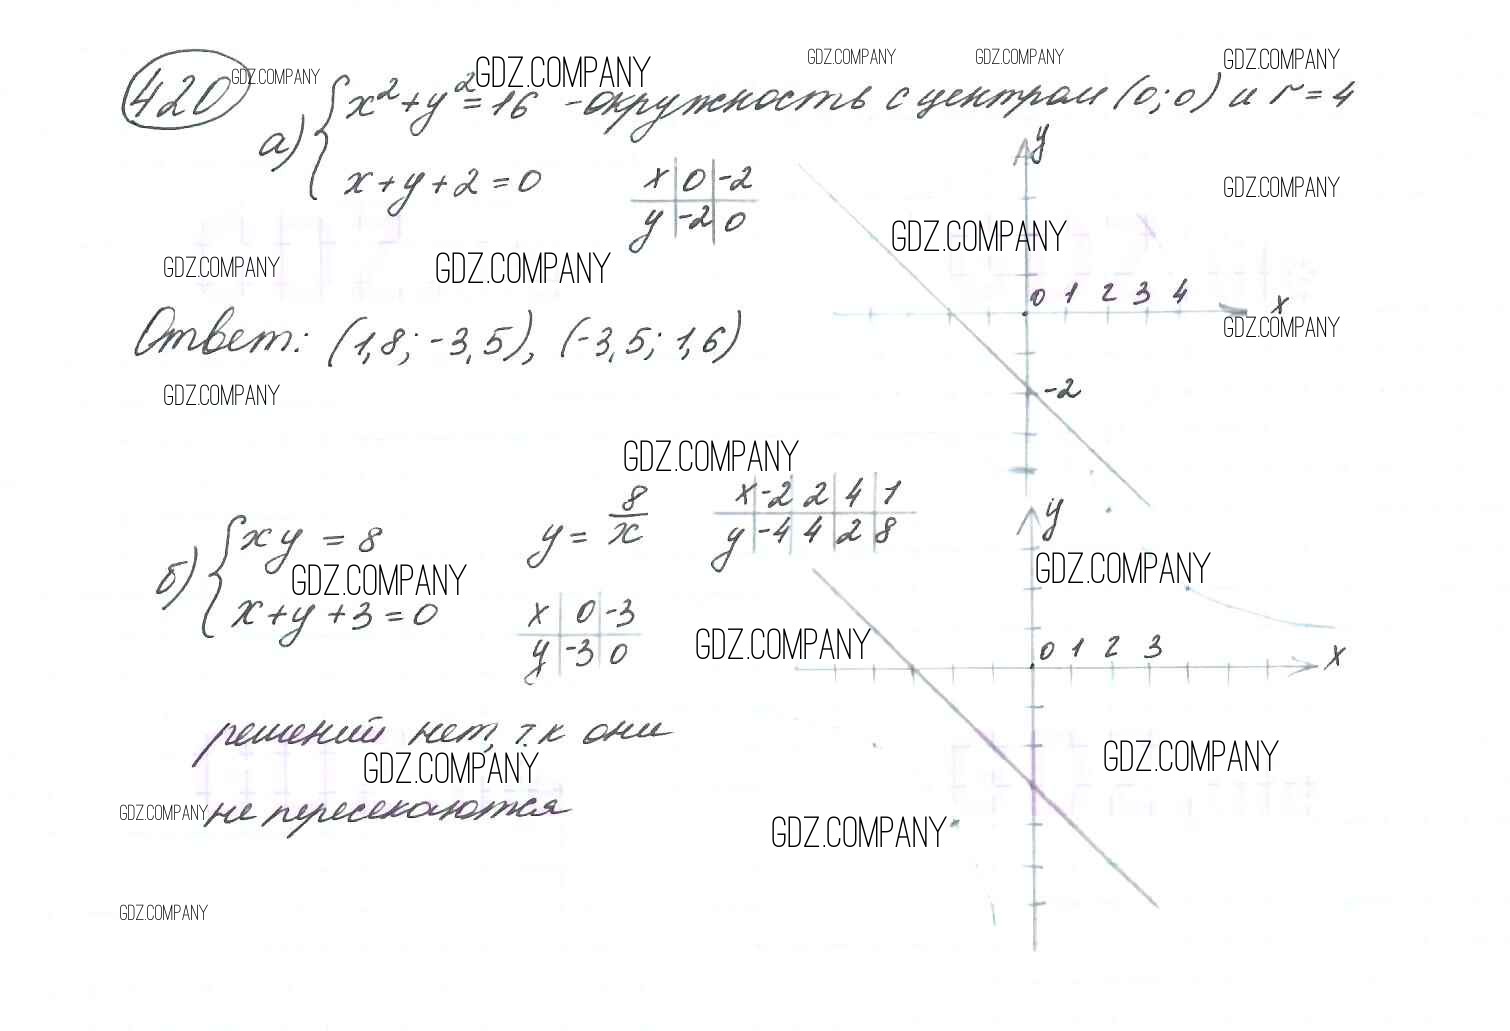 GDZ.COMPANY GDZ.COMPANY GDZ.COMPANY
420 GDZ.COMPANY GDZ.COMPANY
а) x²+y²=16 - окружность с центром (0;0) и r=4
x+y+2=0
x 0 -2
y -2 0
y
GDZ.COMPANY
GDZ.COMPANY
GDZ.COMPANY GDZ.COMPANY
0 1 2 3 4 x
GDZ.COMPANY
Ответ: (1,8; -3,5), (-3,5; 1,6)
GDZ.COMPANY
-2
GDZ.COMPANY
б) xy = 8
x+y+3=0
y = 8/x
x -2 2 4 1
y -4 4 2 8
y
GDZ.COMPANY GDZ.COMPANY
x 0 -3
y -3 0
GDZ.COMPANY
0 1 2 3 x
решений нет, т.к они
GDZ.COMPANY GDZ.COMPANY
GDZ.COMPANY не пересекаются
GDZ.COMPANY
GDZ.COMPANY